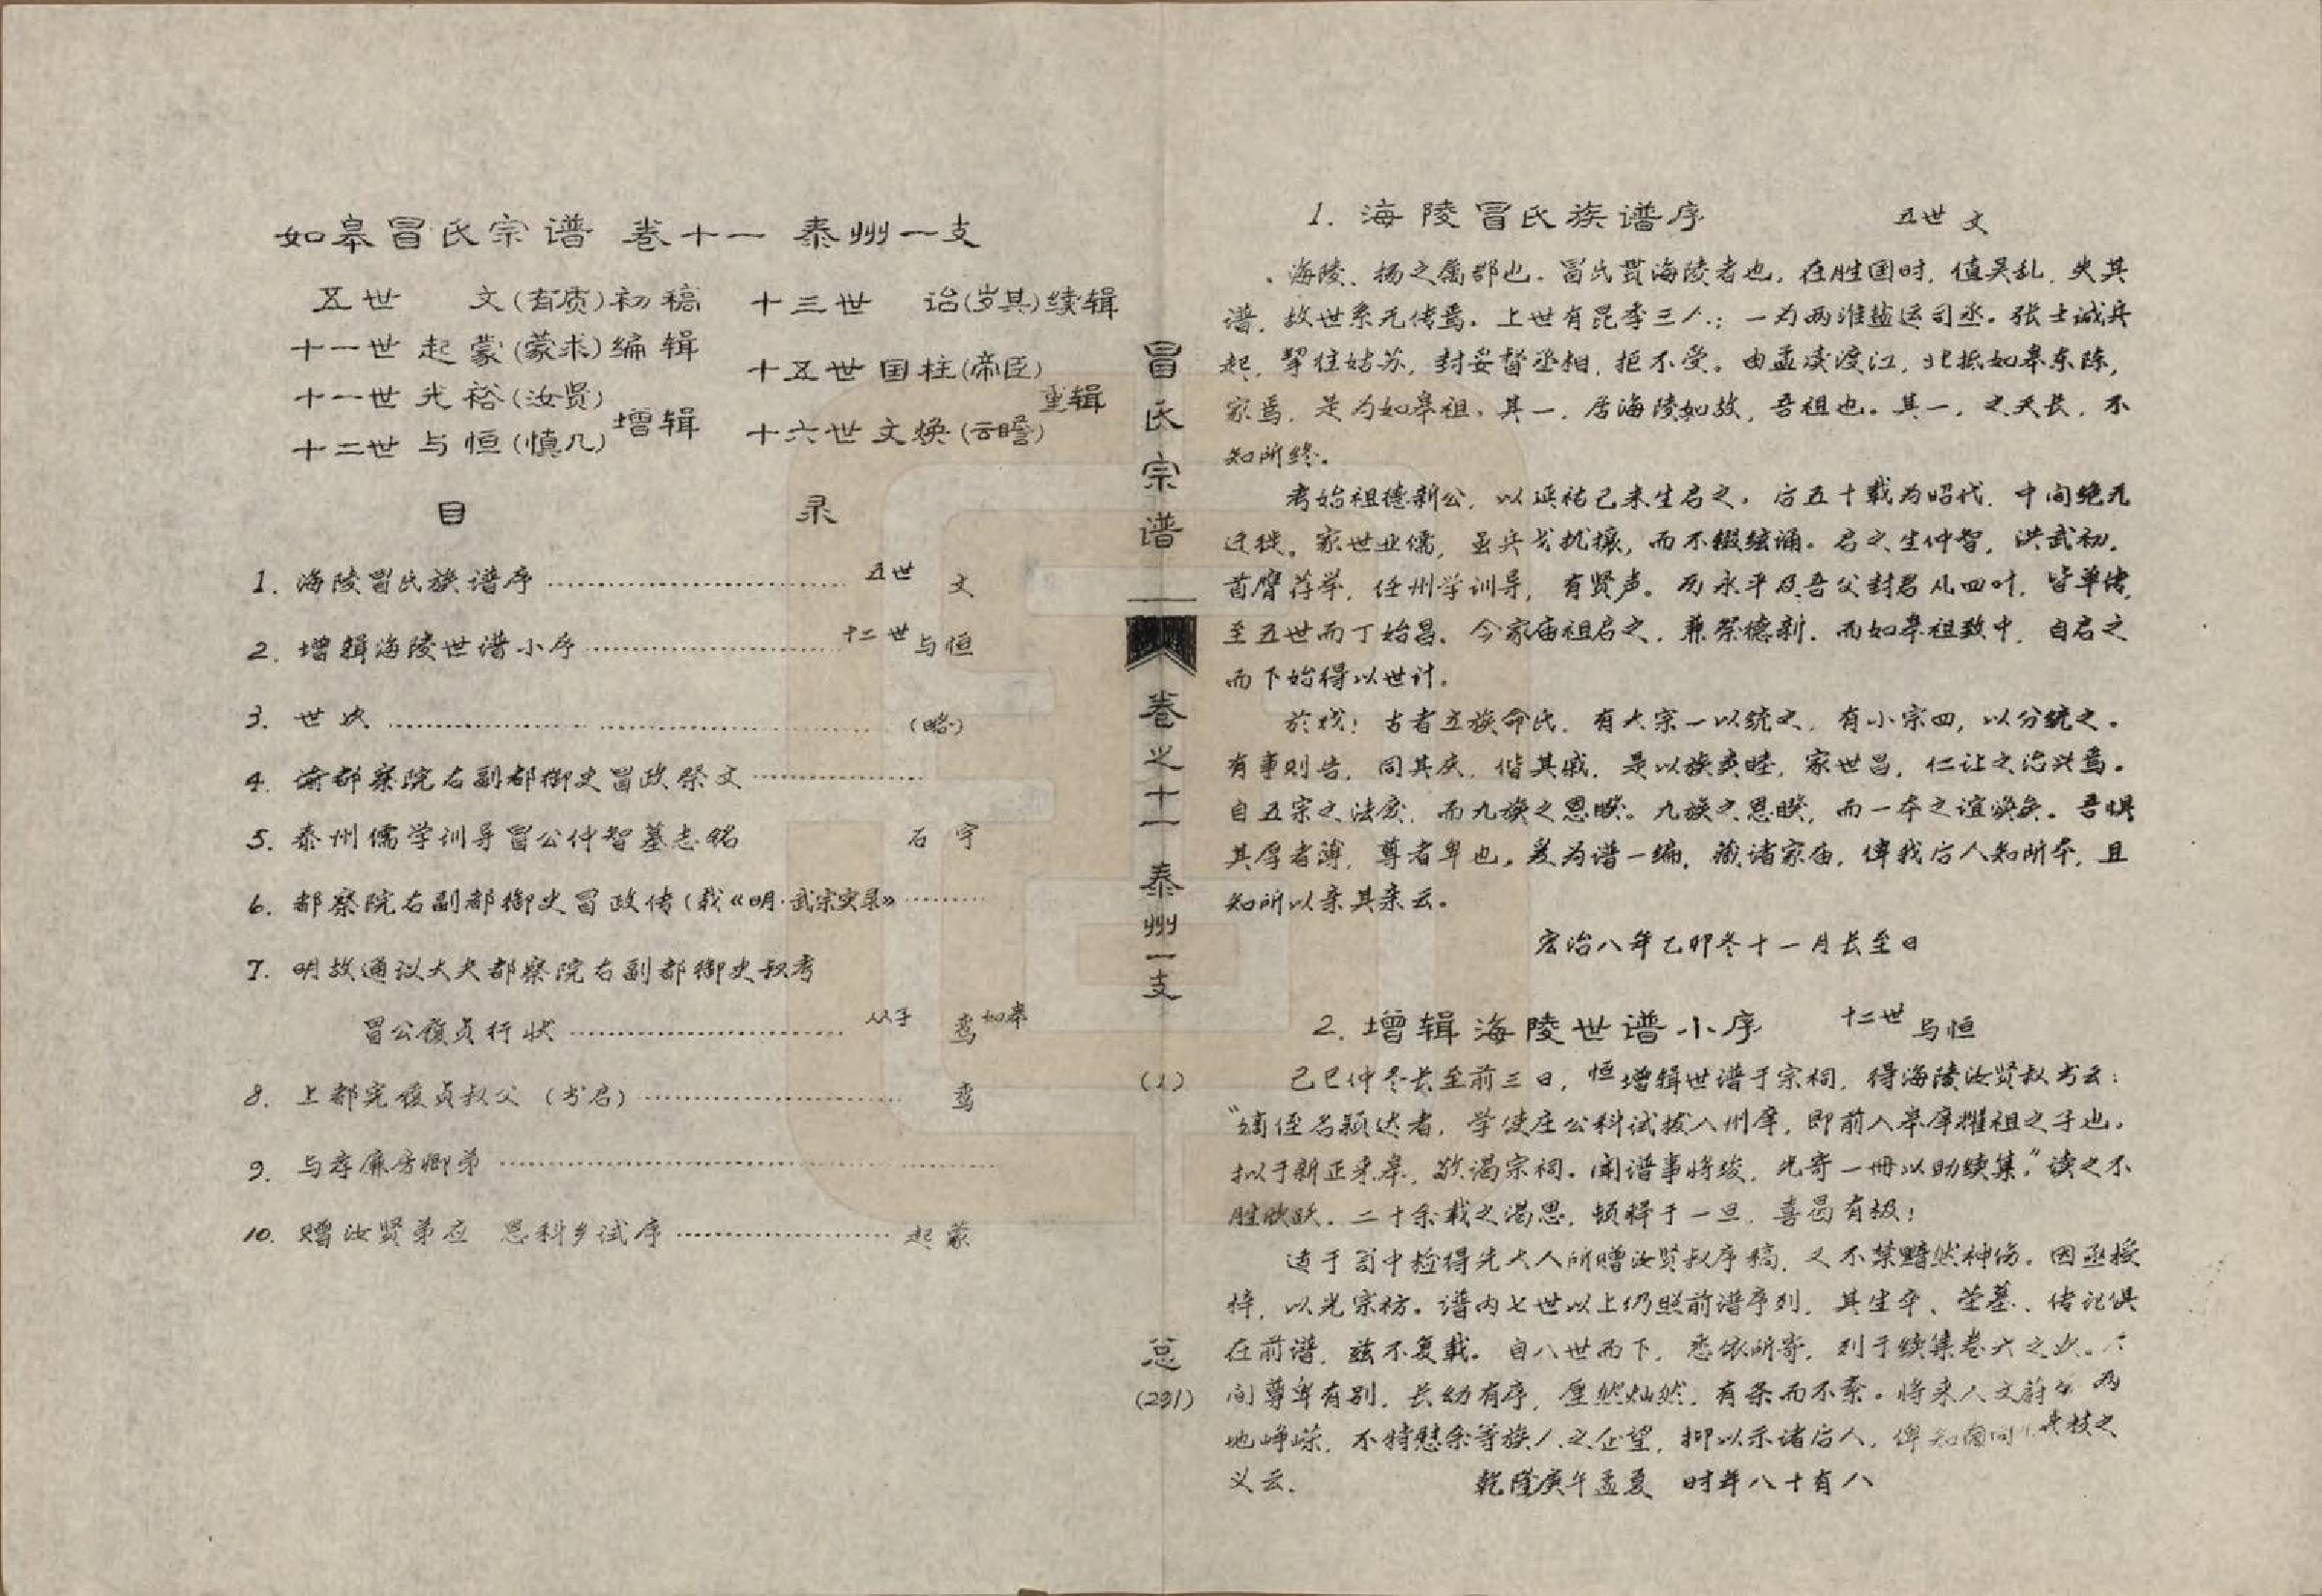 如皋冒氏宗谱 卷十一 泰州一支
五世 文(有质)初稿
十一世 起蒙(蒙求)编辑
十一世 光裕(汝贤)
十二世 与恒(慎几)
增辑
十三世 诒(岁其)续辑
十五世国柱(帝臣)
十六世文焕(云瞻)
重辑
目 录
1. 海陵冒氏族谱序 五世 文
2. 增辑海陵世谱小序 十二世 与恒
3. 世次 (略)
4. 前都察院右副都御史冒政祭文
5. 泰州儒学训导冒公仲智墓志铭 石宇
6. 都察院右副都御史冒政传(载《明·武宗实录》
7. 明故通议大夫都察院右副都御史叔考
冒公复贞行状 从子 鸾 如皋
8. 上都宪复贞叔父(书启) 鸾
9. 与孝廉方卿弟
10. 赠汝贤弟应 恩科乡试序 起蒙
冒氏宗谱
卷之十一 泰州一支
(1)
总
(291)
1. 海陵冒氏族谱序 五世 文
海陵、扬之属郡也。冒氏贯海陵者也。在胜国时，值吴乱，失其
谱，故世系无传焉。上世有昆季三人：一为两淮盐运司丞。张士诚兵
起，挈往姑苏，封妥督丞相，拒不受。由孟渎渡江，北抵如皋东陈，
家焉，是为如皋祖。其一，居海陵如故，吾祖也。其一，之天长，不
知所终。
考始祖德新公，以延祐己未生启之。后五十载为昭代，中间绝无
迁徙。家世业儒，虽兵戈扰攘，而不辍弦诵。启之生仲智，洪武初，
首膺荐举，任州学训导，有贤声。历永平及吾父封君凡四叶，皆单传，
至五世而丁始昌。今家庙祖启之，兼祭德新，而如皋祖致中，自启之
而下始得以世计。
於戏！古者立族命氏，有大宗一以统之，有小宗四，以分统之。
有事则告，同其庆，偕其戚，是以族爽睦，家世昌，仁让之治兴焉。
自五宗之法废，而九族之恩睽。九族之恩睽，而一本之谊涣矣。吾惧
其厚者薄，尊者卑也。爰为谱一编，藏诸家庙，俾我后人知所本，且
知所以亲其亲云。
宏治八年乙卯冬十一月长至日
2. 增辑海陵世谱小序 十二世 与恒
己巳仲冬长至前三日，恒增辑世谱于宗祠，得海陵汝贤叔书云：
“嫡侄名颖达者，学使庄公科试拔入州庠，即前入皋庠耀祖之子也。
拟于新正来皋，敬谒宗祠。闻谱事将竣，先寄一册以助续集。”读之不
胜欣跃。二十余载之渴思，顿释于一旦，喜曷有极！
适于笥中检得先大人所赠汝贤叔序稿，又不禁黯然神伤。因亟授
梓，以光宗祊。谱内七世以上仍照前谱序列，其生卒、茔墓、传记俱
在前谱，兹不复载。自八世而下，悉依所寄，列于续集卷六之次。
间尊卑有别，长幼有序，厘然灿然，有条而不紊。将来人文蔚 两
地峥嵘，不特慰余等族人之企望，抑以示诸后人，俾知 共枝之
义云。 乾隆庚午孟夏 时年八十有八